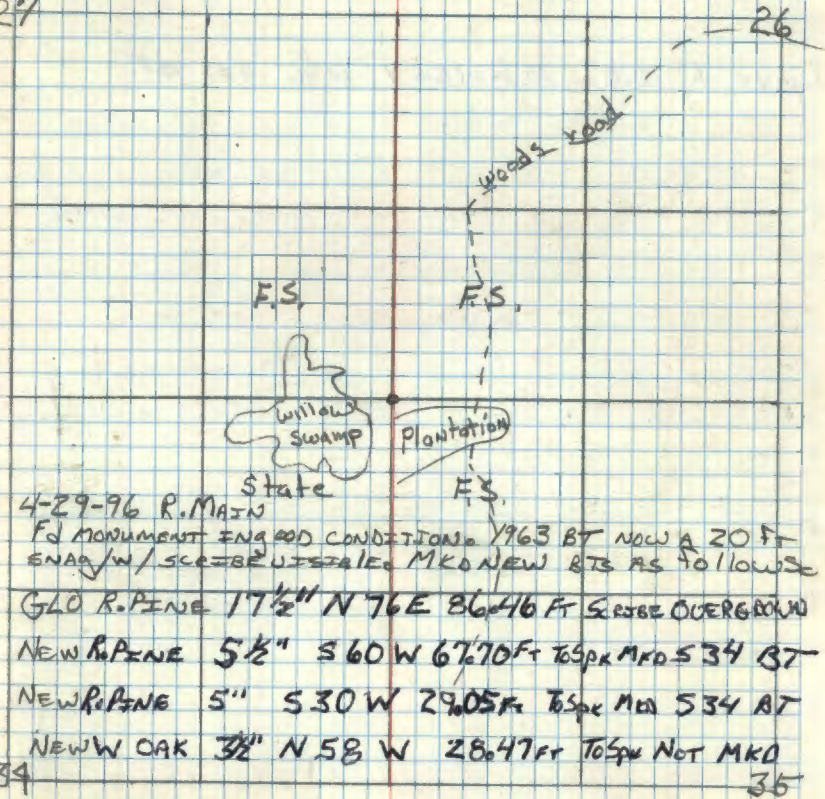 27
26
woods road
F.S.
F.S.
willow
swamp
plantation
State
F.S.
4-29-96 R. MAIN
Fd MONUMENT IN GOOD CONDITION. 1963 BT NOW A 20 FT
SNAG/W/ SCRIBE VISIBLE. MKD NEW BTS AS FOLLOWS:
GLO R. PINE 17½" N 76 E 86.46 FT SCRIBE OVERGROWN
NEW R. PINE 5½" S 60 W 67.70 FT TO SPK MKD S 34 BT
NEW R. PINE 5" S 30 W 29.05 Ft TO SPK MKD S 34 BT
NEW W OAK 3½" N 58 W 28.47 FT TO SPK NOT MKD
34
35